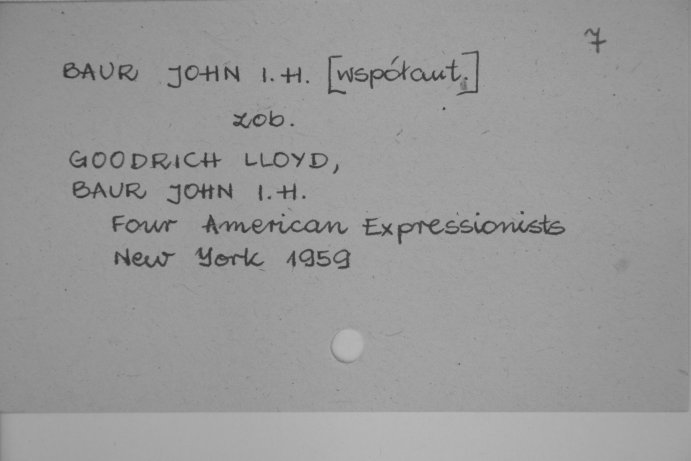 7
BAUR JOHN I.H. [współaut.]
zob.
GOODRICH LLOYD,
BAUR JOHN I.H.
Four American Expressionists
New York 1959